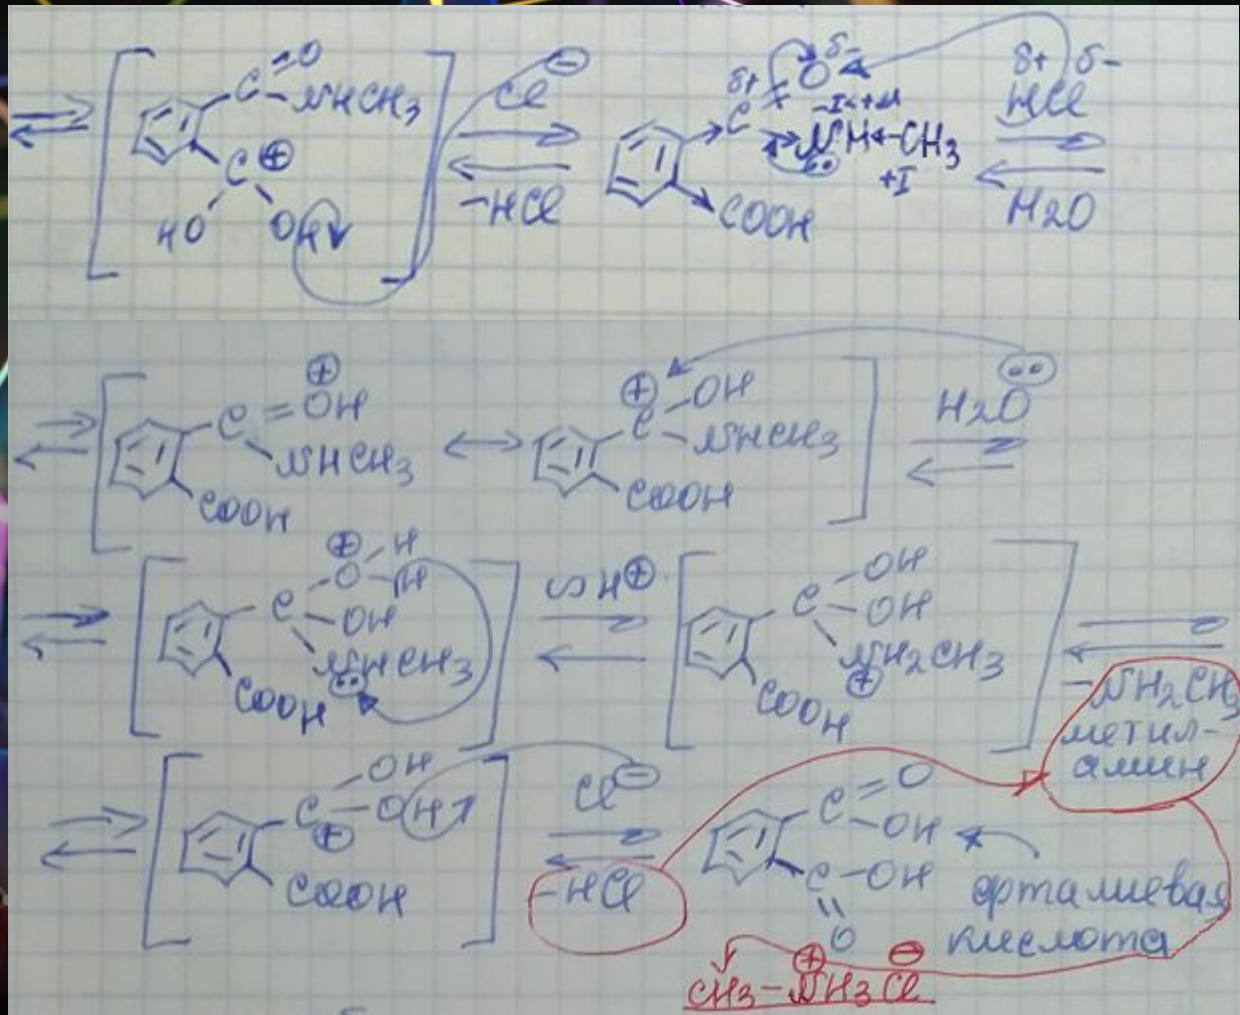 O
C
NHCH3
C ⊕
HO OH
Cl ⊖
-HCl
δ+ δ-
C O
-I<+M
NH CH3
+I
COOH
δ+ δ-
HCl
H2O
⊕
C = OH
NHCH3
COOH
⊕ OH
C
NHCH3
COOH
H2O
⊕ H
O H
C OH
NHCH3
COOH
∽ H⊕
OH
C OH
NH2CH3
⊕
COOH
- NH2CH3
метил-
амин
OH
C OH
⊕
COOH
Cl ⊖
-HCl
C = O
OH
C - OH
O
фталиевая
кислота
⊕ ⊖
CH3-NH3 Cl